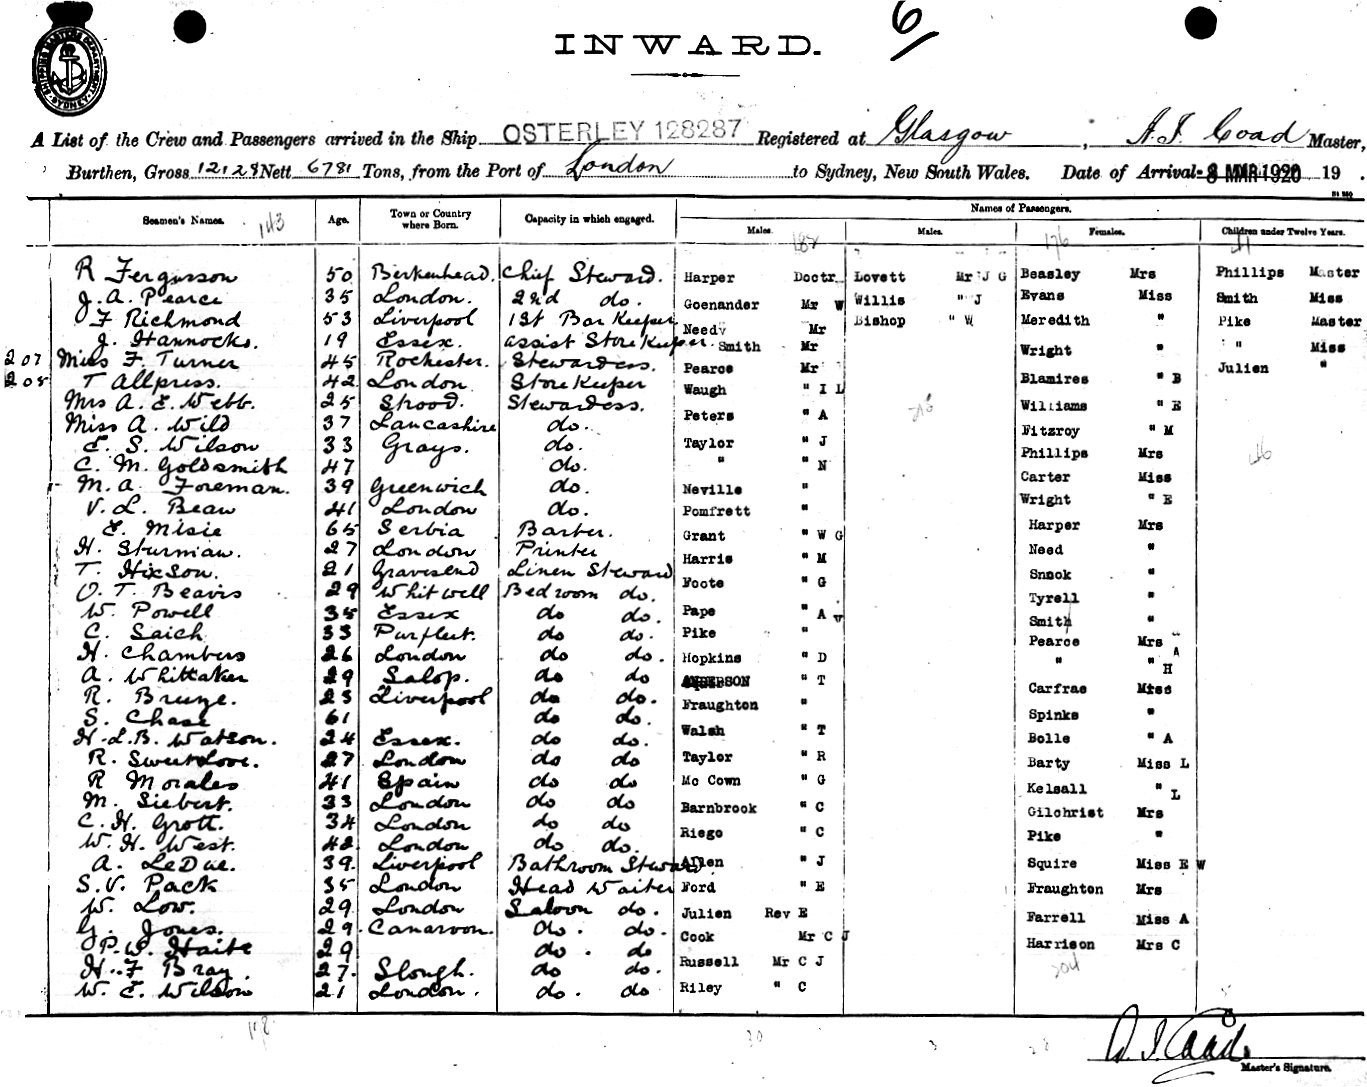 6
SHIPPING MASTERS DEPARTMENT SYDNEY
INWARD.
A List of the Crew and Passengers arrived in the Ship OSTERLEY 128287 Registered at Glasgow, A.J. Coad Master,
Burthen, Gross 12128 Nett 6781 Tons, from the Port of London to Sydney, New South Wales. Date of Arrival 8 MAR 1920 19 .
Names of Passengers.
Seamen's Names. 143 Age. Town or Country where Born. Capacity in which engaged. Males. Males. Females. 176 Children under Twelve Years.
R Fergusson 50 Berkenhead. Chief Steward.
J. A. Pearce 35 London. 22d do.
F Richmond 53 Liverpool 1st Bar Keeper
J. Hannocks. 19 Essex. assist Store Keeper.
207 Miss F. Turner 45 Rochester. Stewardess.
208 T Allpress. 42 London Store Keeper
Mrs A. E. Webb. 25 Strood. Stewardess.
Miss A. Wild 37 Lancashire do.
E. S. Wilson 33 Grays. do.
C. M. Goldsmith 47 do.
M. A. Foreman. 39 Greenwich do.
V. L. Beaw 41 London do.
E. Misie 65 Serbia Barber.
H. Sturman. 27 London Printer
T. Hixson. 21 Gravesend Linen Steward
O. T. Beavis 29 Whitwell Bedroom do.
W. Powell 35 Essex do do.
C. Saich 33 Purfleet. do do.
H. Chambers 26 London do do.
A. Whittaker 29 Salop. do do
R. Brunze. 23 Liverpool do do.
S. Chase 61 do do.
H. L. B. Watson. 24 Essex. do do.
R. Sweetlove. 27 London do do.
R Morales 41 Spain do do
M. Siebert. 33 London do do
C. H. Grott. 34 London do do
W. H. West. 42 London do do.
A. LeDue. 39. Liverpool Bathroom Steward
S. V. Pack 35 London Head Waiter
W. Low. 29 London Saloon do.
G. Jones. 29. Canarvon. do. do.
P. W. Haite 29 do. do
H. F Bray. 27. Slough. do do.
W. E. Wilson 21 London. do. do
Harper Doctr
Goenander Mr W
Need Mr
Smith Mr
Pearce Mr
Waugh " I L
Peters " A
Taylor " J
" " N
Neville "
Pomfrett "
Grant " W G
Harris " M
Foote " G
Pape " A
Pike "
Hopkins " D
ANDERSON " T
Fraughton "
Walsh " T
Taylor " R
Mc Cown " G
Barnbrook " C
Riego " C
Allen " J
Ford " E
Julien Rev E
Cook Mr C J
Russell Mr C J
Riley " C
Lovett Mr J G
Willis " J
Bishop " W
Beasley Mrs
Evans Miss
Meredith "
Wright "
Blamires " B
Williams " E
Fitzroy " M
Phillips Mrs
Carter Miss
Wright " E
Harper Mrs
Need "
Snook "
Tyrell "
Smith "
Pearce Mrs A
" " H
Carfrae Miss
Spinks "
Bolle " A
Barty Miss L
Kelsall " L
Gilchrist Mrs
Pike "
Squire Miss E W
Fraughton Mrs
Farrell Miss A
Harrison Mrs C
204
Phillips Master
Smith Miss
Pike Master
" Miss
Julien "
46
A. J. Coad.
Master's Signature.